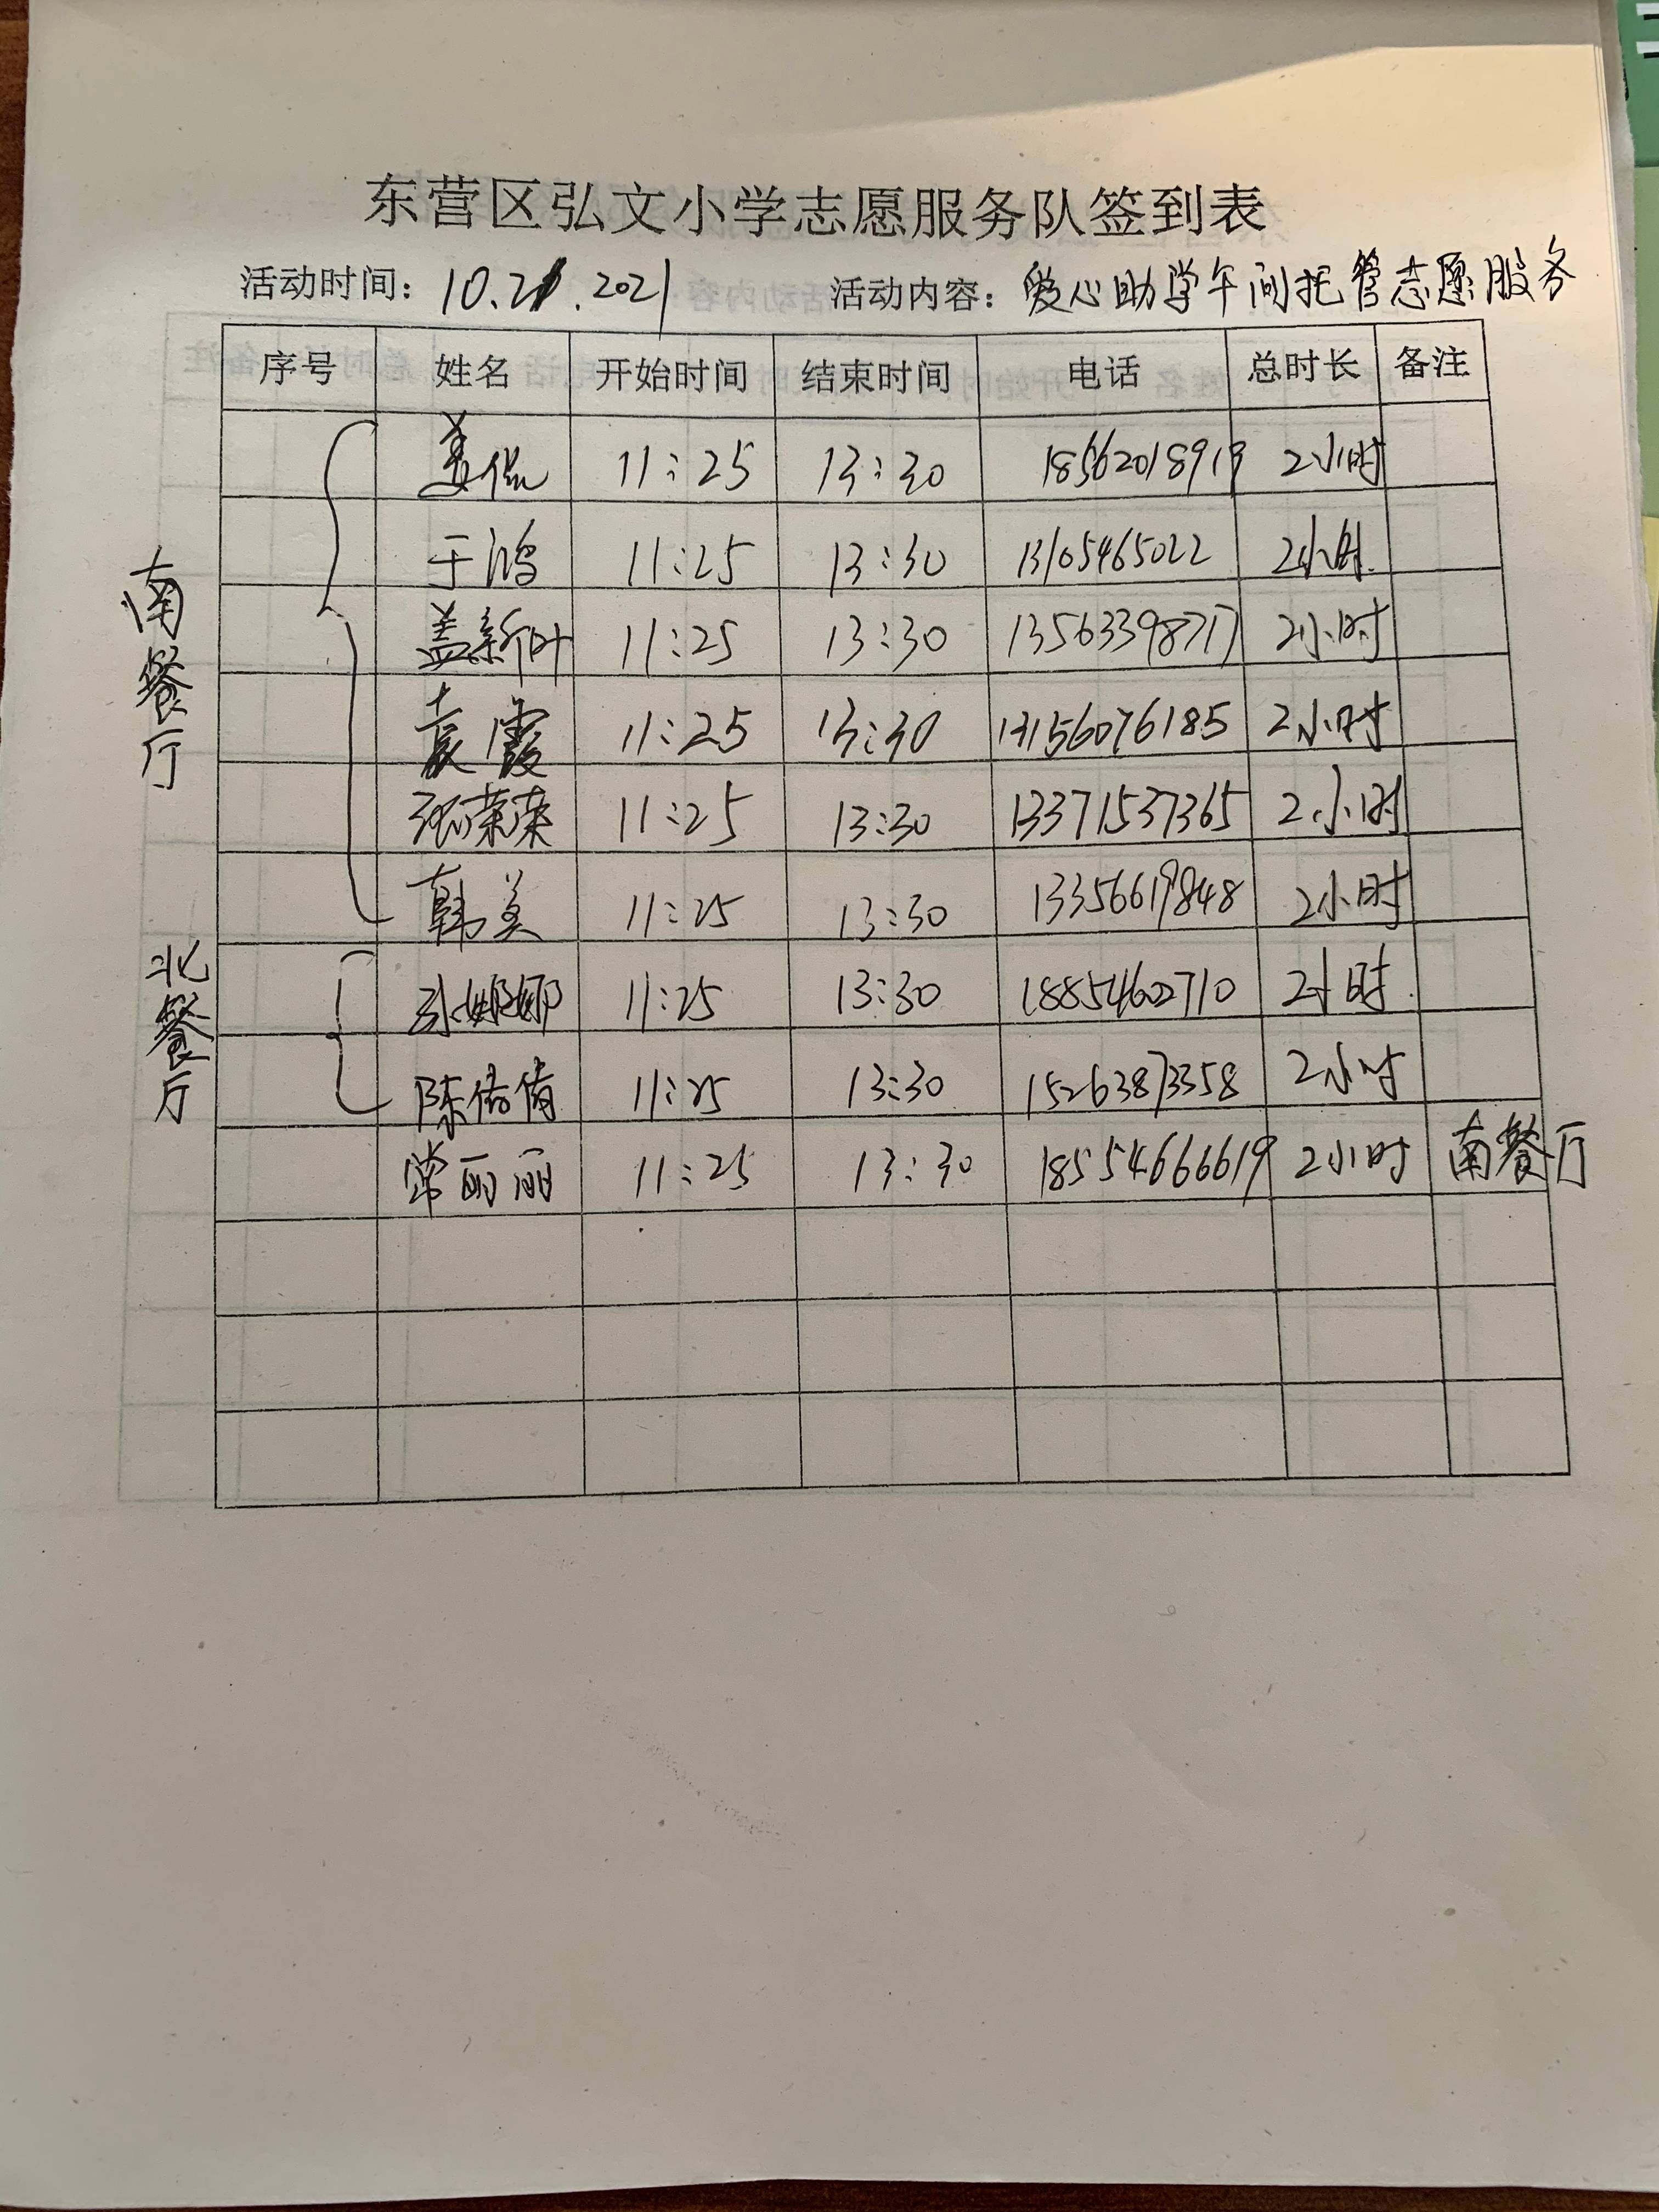 东营区弘文小学志愿服务队签到表
活动时间: 10.21.2021 活动内容: 爱心助学午间托管志愿服务
序号 姓名 开始时间 结束时间 电话 总时长 备注
姜 11:25 13:30 18562018919 2小时
于鸿 11:25 13:30 13105465022 2小时
盖新叶 11:25 13:30 13563398717 2小时
袁霞 11:25 13:30 13156076185 2小时
张荣荣 11:25 13:30 13371537365 2小时
韩美 11:25 13:30 13356619848 2小时
孙娜娜 11:25 13:30 18854602710 2小时
陈倩倩 11:25 13:30 15263873358 2小时
常丽丽 11:25 13:30 18554666619 2小时 南餐厅
南餐厅
北餐厅